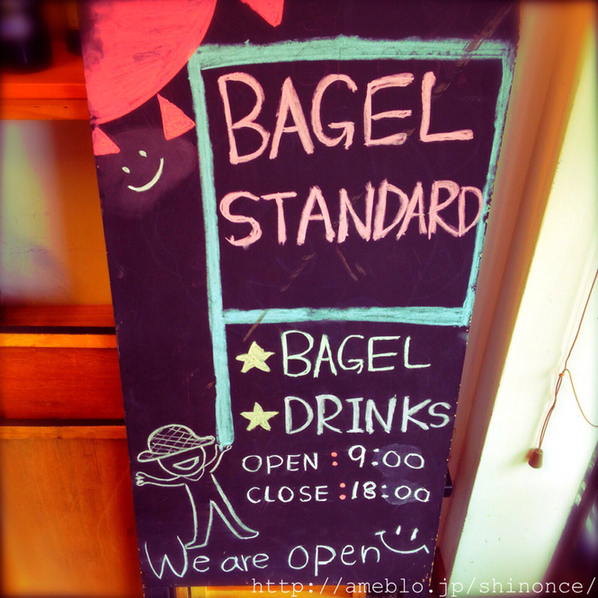 BAGEL
STANDARD
★BAGEL
★DRINKS
OPEN:9:00
CLOSE:18:00
We are open
http://ameblo.jp/shinonce/